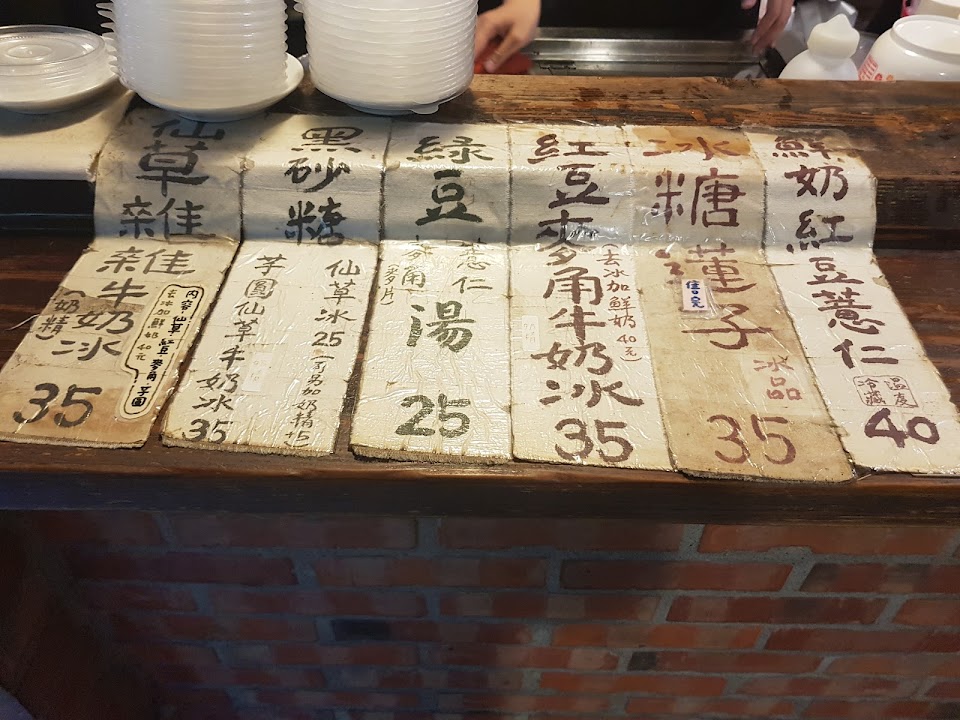 鮮奶紅豆薏仁
溫度
冷藏
40
冰糖蓮子
售完
冰品
35
紅豆麥角牛奶冰
(去冰加鮮奶40元)
35
綠豆
薏仁
麥角
(麥片)
湯
25
黑砂糖
仙草冰25
(可另加奶精+5
芋圓仙草牛奶冰
35
仙草雜雜牛奶冰
(奶精)
內容仙草 紅豆 麥角 芋圓
去冰加鮮奶40元
35